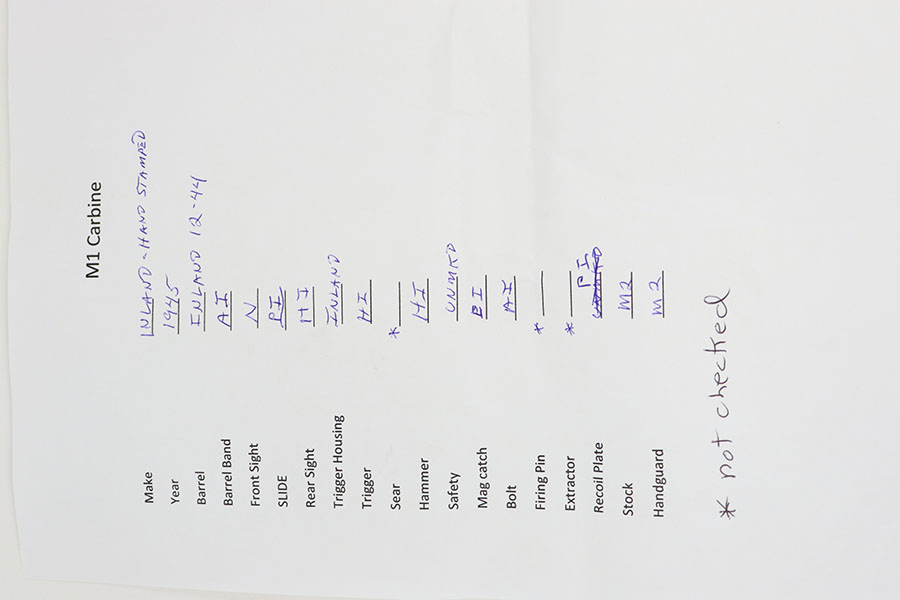 M1 Carbine
Make INLAND - HAND STAMPED
Year 1945
Barrel INLAND 12-44
Barrel Band AI
Front Sight N
SLIDE PI
Rear Sight HI
Trigger Housing INLAND
Trigger HI
Sear * ____
Hammer HI
Safety UNMKD
Mag catch EI
Bolt AI
Firing Pin * ____
Extractor * ____
Recoil Plate PI
Stock M2
Handguard M2
* not checked